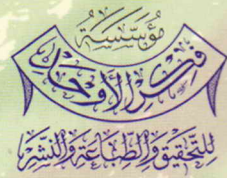 مُؤَسَّسَة
فكر الأوحد
للتحقيق والطباعة والنشر